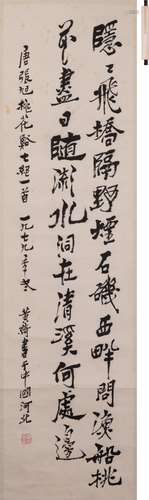 隱〻飛橋隔野煙石磯西畔問漁船桃
花盡日隨流水洞在清溪何處邊
唐張旭桃花谿七絕一首 一九七九年冬 黃綺書于中國河北